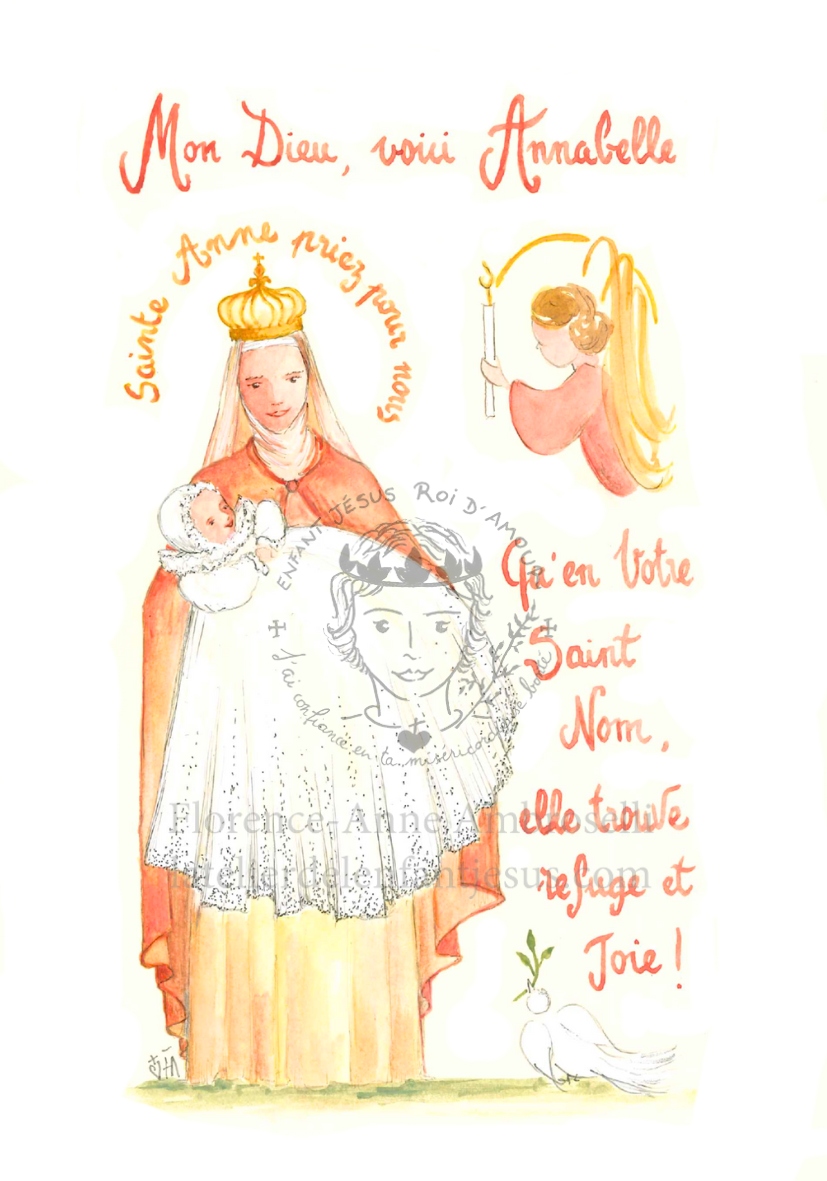 Mon Dieu, voici Annabelle
Sainte Anne priez pour nous
ENFANT JÉSUS ROI D'AMOUR
J'ai confiance en ta miséricordieuse bonté
Qu'en Votre
Saint
Nom,
elle trouve
refuge et
Joie !
Florence-Anne Ambroselli
latelierdelenfantjesus.com